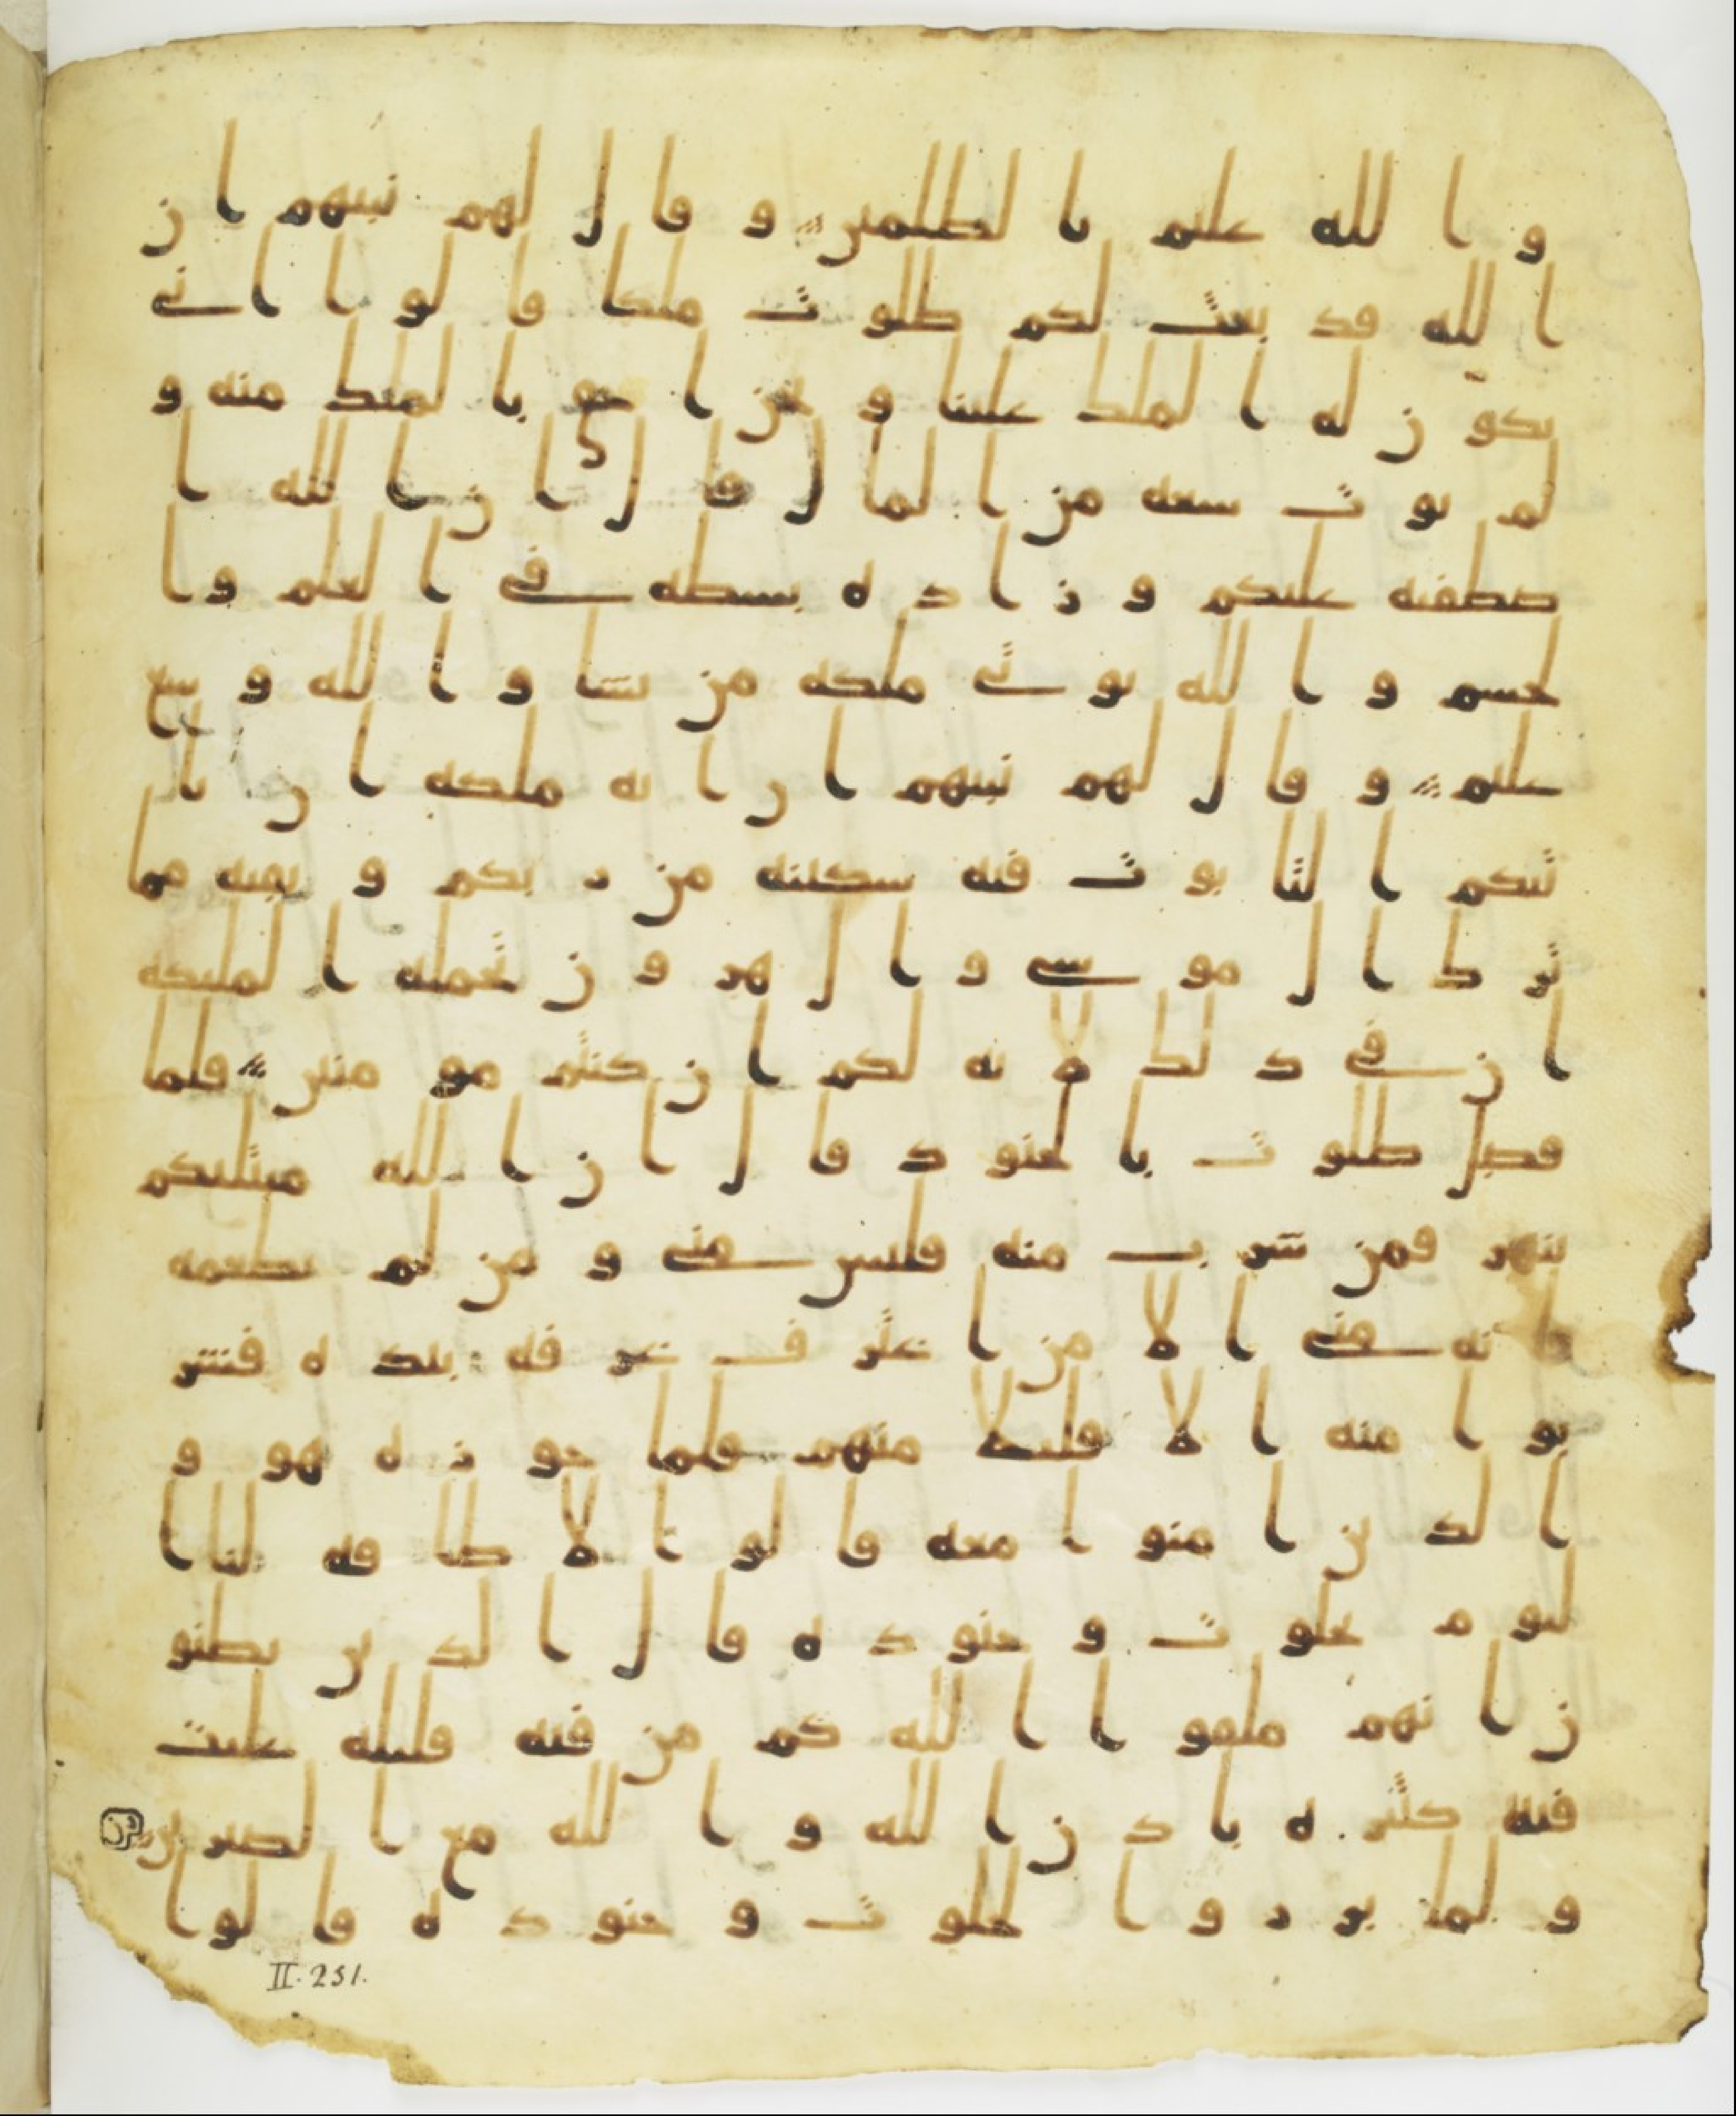 والله عليم بالظلمين وقال لهم نبيهم ان
الله قد بعث لكم طلوت ملكا قالوا انى
يكون له الملك علينا ونحن احق بالملك منه و
لم يوت سعه من المال قال ان الله ا
صطفيه عليكم وزاده بسطه فى العلم وا
لجسم والله يوتى ملكه من يشا والله وسع
عليم وقال لهم نبيهم ان ايه ملكه ان يا
تيكم التابوت فيه سكينه من ربكم وبقيه مما
ترك ال موسى وال هرون تحمله الملئكه
ان فى ذلك لايه لكم ان كنتم مومنين فلما
فصل طلوت بالجنود قال ان الله مبتليكم
بنهر فمن شرب منه فليس منى ومن لم يطعمه
فانه منى الا من اغترف غرفه بيده فشر
بوا منه الا قليلا منهم فلما جوزه هو و
الذين امنوا معه قالوا لا طاقه لنا ا
ليوم بجلوت وجنوده قال الذين يظنو
ن انهم ملقوا الله كم من فئه قليله غلبت
فئه كثيره باذن الله والله مع الصبرين
ولما برزوا لجلوت وجنوده قالوا
II. 251.